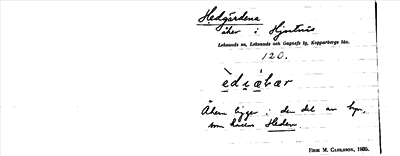 Hedgårdena
åker i Hjortnäs
Leksands sn, Leksands och Gagnefs tg, Kopparbergs län.
120.
Åkern ligger i den del av byn,
som kallas Heden.
ERIK M. CARLSSON, 1935.